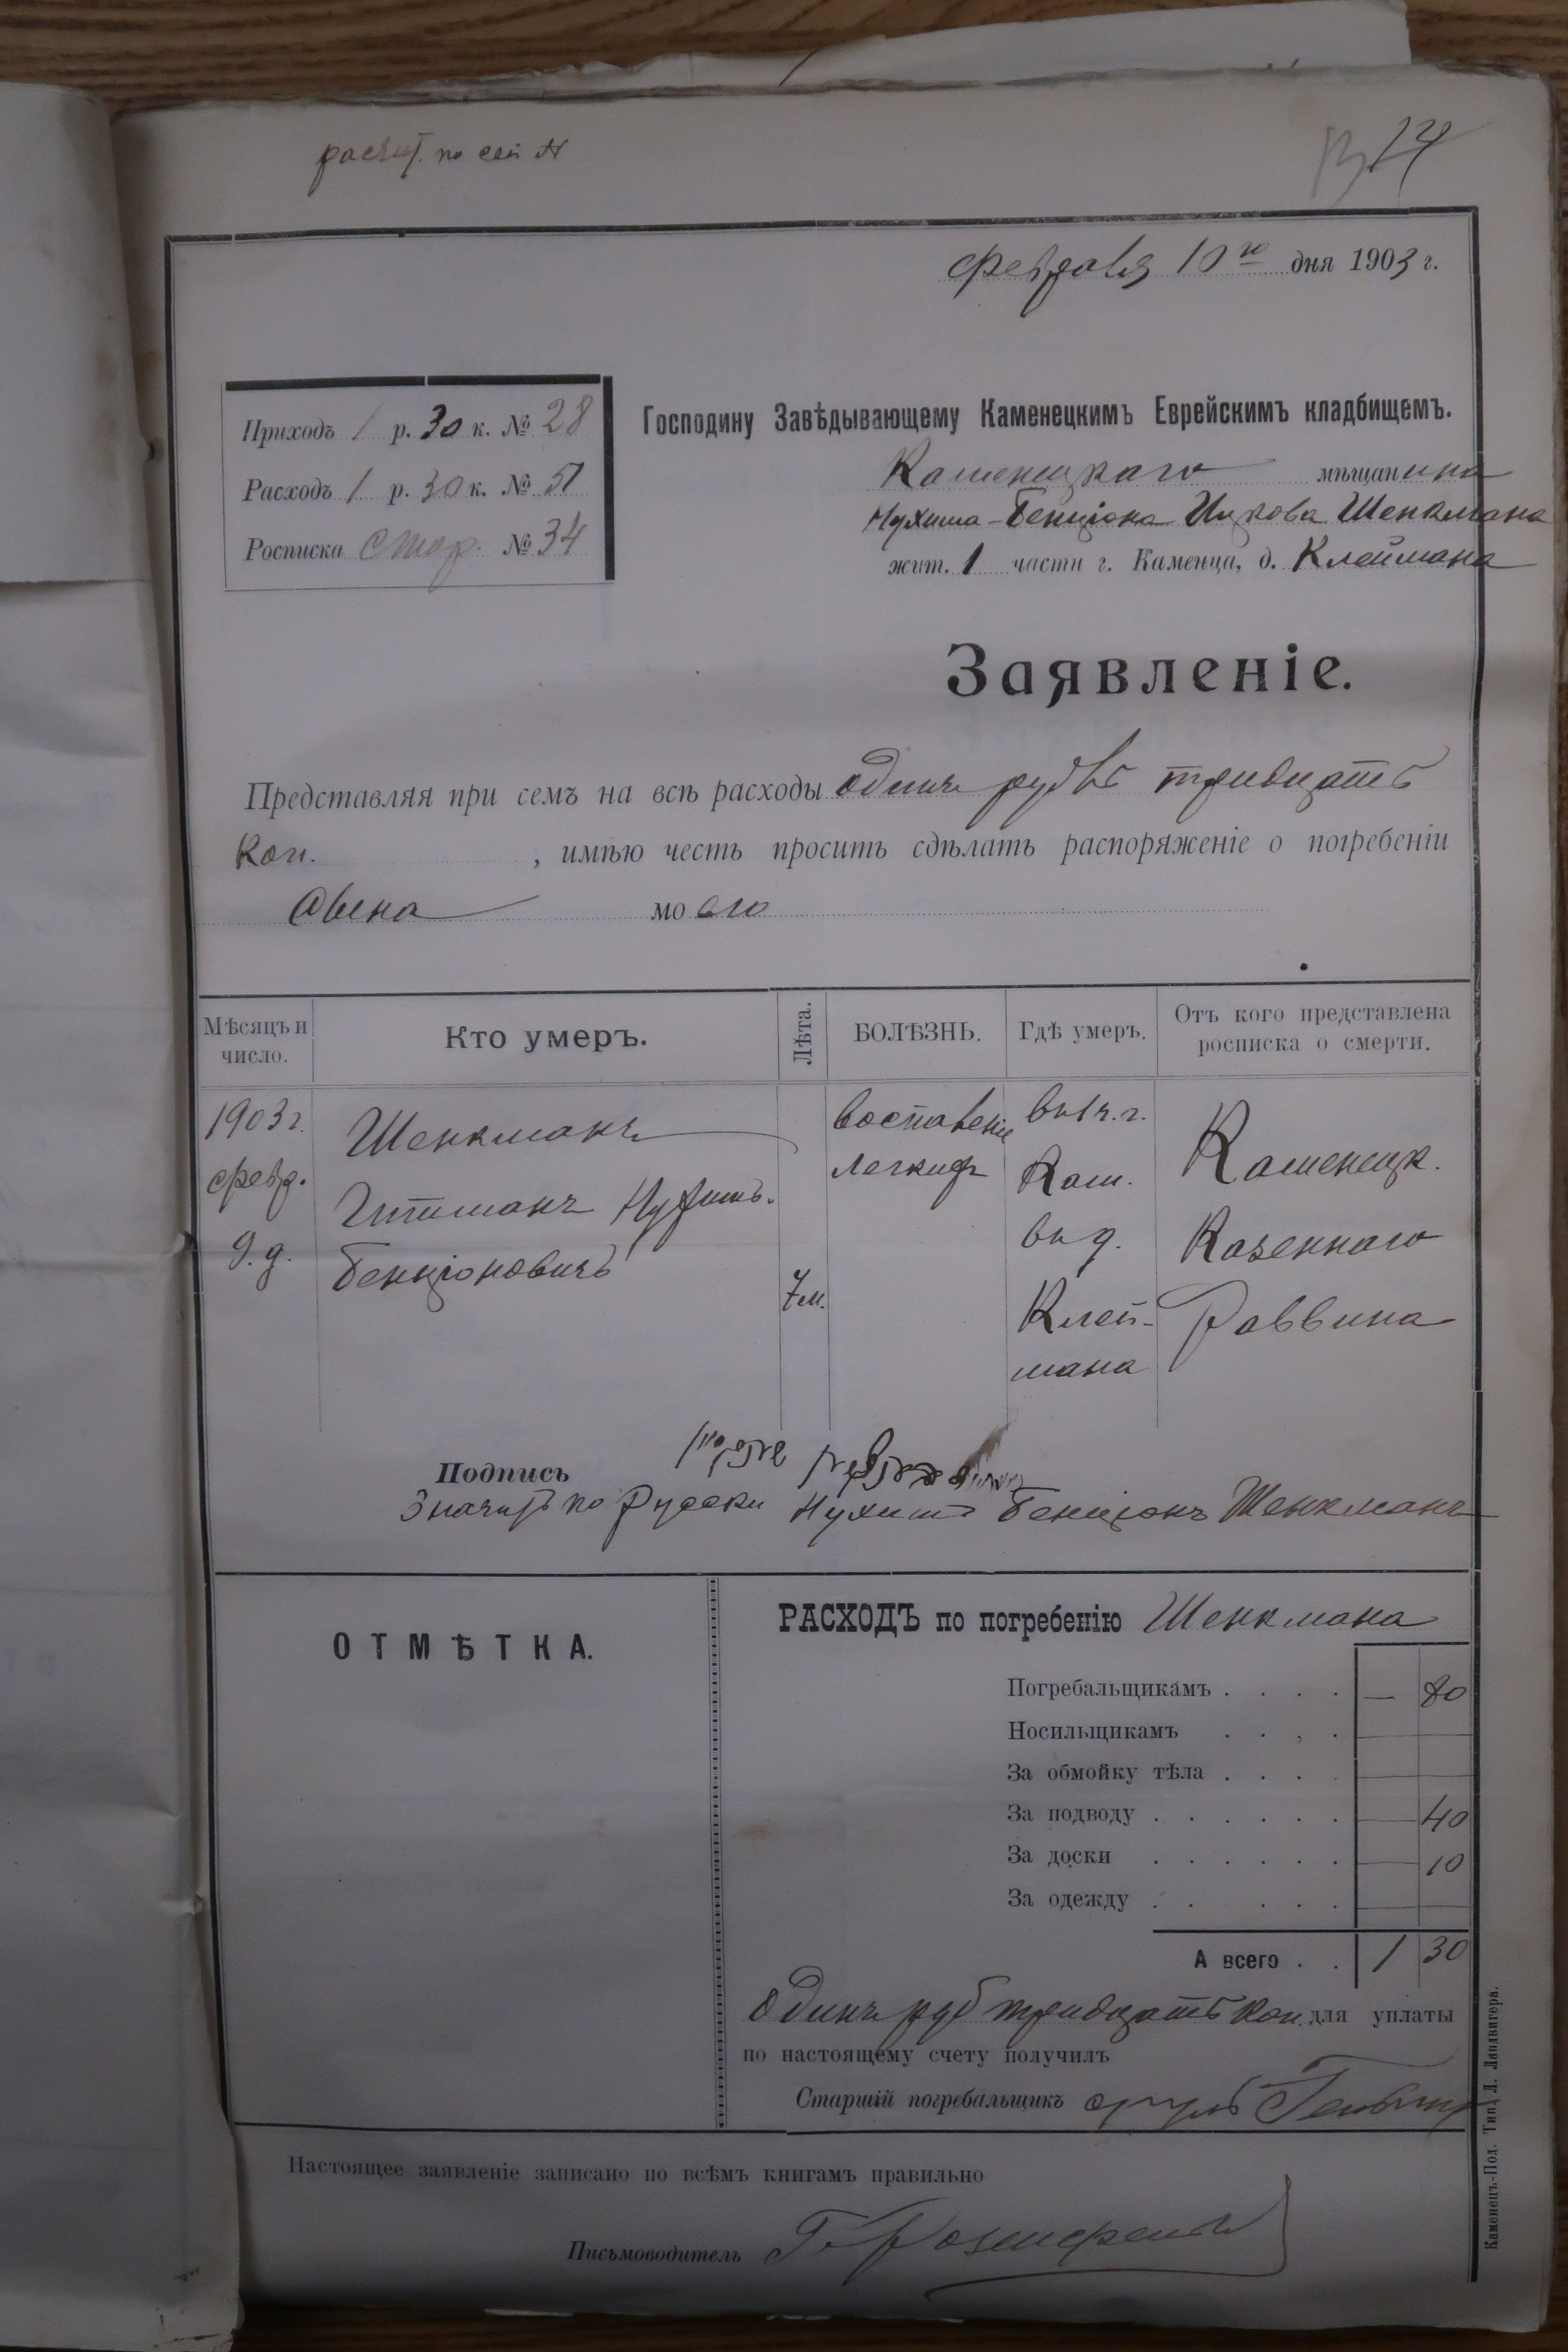 расчит. по сей №
13 14
февраля 10го дня 1903 г.
Приходъ 1 р. 30 к. № 28
Расходъ 1 р. 30 к. № 51
Росписка стор. № 34
Господину Завѣдывающему Каменецкимъ Еврейскимъ кладбищемъ.
Каменецкаго мѣщанина
Нухима-Бенціона Ицкова Шенкмана
жит. 1 части г. Каменца, д. Клеймана
Заявленіе.
Представляя при семъ на всѣ расходы одинъ рубль тридцать
коп. , имѣю честь просить сдѣлать распоряженіе о погребеніи
сына моего
Мѣсяцъ и число.
Кто умеръ.
Лѣта.
БОЛѢЗНЬ.
Гдѣ умеръ.
Отъ кого представлена росписка о смерти.
1903 г.
февр.
9. д.
Шенкманъ
Гитманъ Нухимъ-
Бенціоновичъ
7 м.
воспаленіе
легкихъ
въ 1 ч. г.
Кам.
въ д.
Клей-
мана
Каменецк.
Казеннаго
Раввина
Подпись
Значитъ по Русски Нухимъ Бенціонъ Шенкманъ
ОТМѢТКА.
РАСХОДЪ по погребенію Шенкмана
Погребальщикамъ . . . . — 80
Носильщикамъ . . , .
За обмойку тѣла . . . .
За подводу . . . . . . 40
За доски . . . . . . 10
За одежду . . . . .
А всего . . 1 30
Одинъ руб тридцать коп. для уплаты
по настоящему счету получилъ
Старшій погребальщикъ
Настоящее заявленіе записано по всѣмъ книгамъ правильно
Письмоводитель
Каменецъ-Под. Тип. Л. Ландвигера.